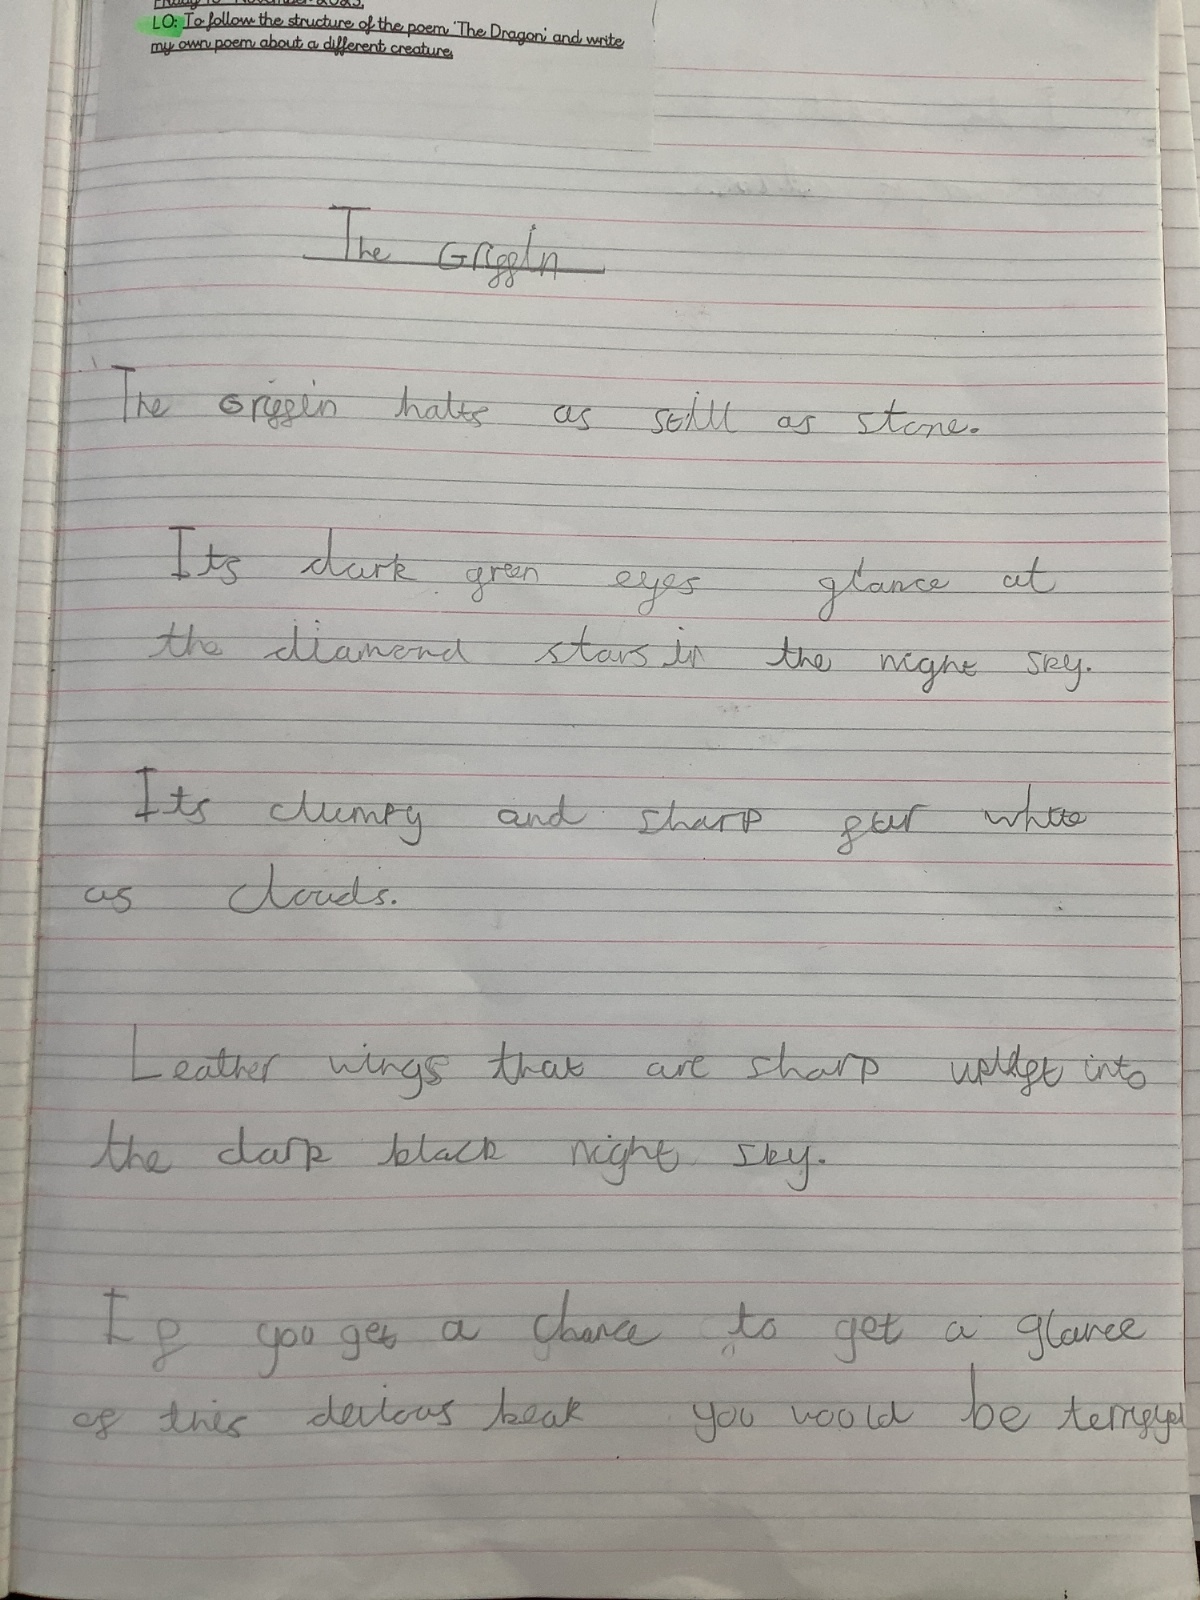 LO: To follow the structure of the poem 'The Dragon' and write
my own poem about a different creature
The Griffin
The Griffin halts as still as stone.
Its dark green eyes glance at
the diamond stars in the night sky.
Its clumpy and sharp fur white
as clouds.
Leather wings that are sharp uplift into
the dark black night sky.
If you get a chance to get a glance
of this devious beak you would be terrifyed